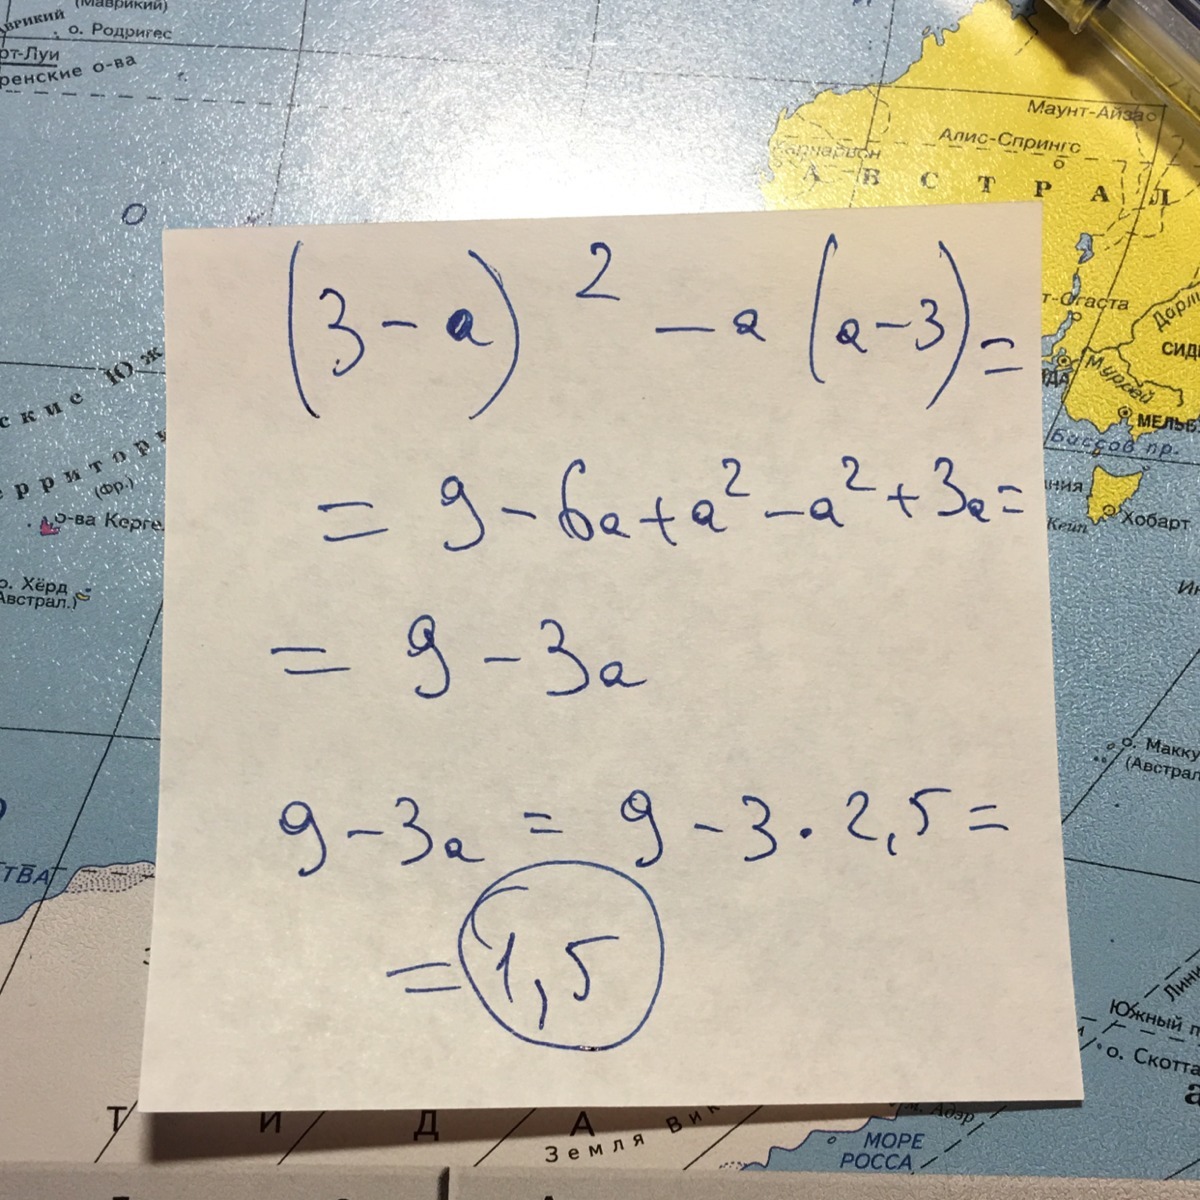 (Маврикий)
о. Родригес
рт-Луи
ренские о-ва
Маунт-Айза
Алис-Спрингс
Карнарвон
О
А В С Т Р А Л
(3-a)² -a (a-3)=
т-Огаста
Дарли
СИД
ДА
Муррей
МЕЛЬБ
Бассов пр.
ские Юж
ерритори
(Фр.)
= 9-6a+a²-a²+3a=
ния
Хобарт
о-ва Керге
о. Хёрд
Австрал.)
= 9-3a
о. Макку
(Австрал
9-3a = 9-3·2,5=
ТВА
= 1,5
Лини
Южный п
о. Скотта
Т И Д А
Земля Вик
м. Адэр
МОРЕ
РОССА